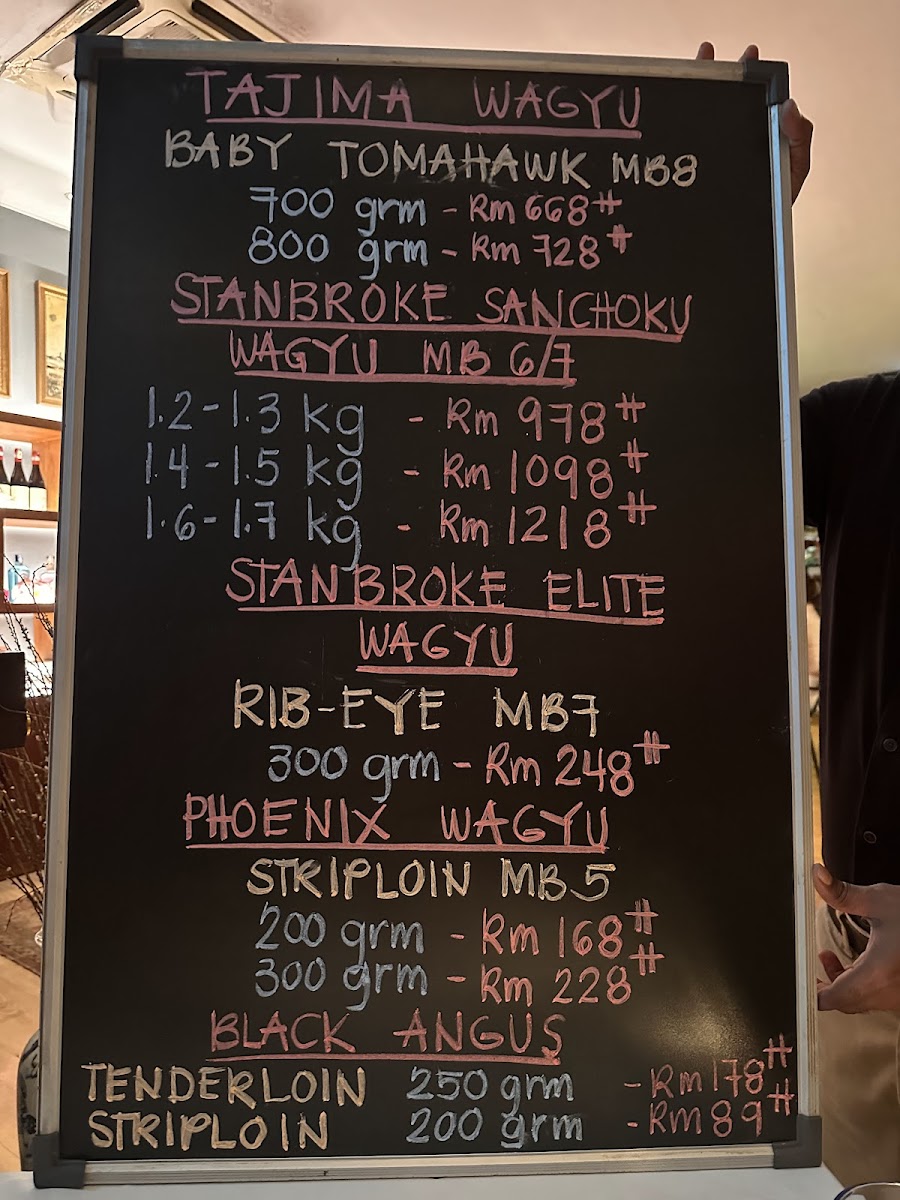 TAJIMA WAGYU
BABY TOMAHAWK MB8
700 grm - Rm 668#
800 grm - Rm 728#
STANBROKE SANCHOKU
WAGYU MB 6/7
1.2-1.3 kg - Rm 978#
1.4-1.5 kg - Rm 1098#
1.6-1.7 kg - Rm 1218#
STANBROKE ELITE
WAGYU
RIB-EYE MB7
300 grm - Rm 248#
PHOENIX WAGYU
STRIPLOIN MB5
200 grm - Rm 168#
300 grm - Rm 228#
BLACK ANGUS
TENDERLOIN 250 grm - Rm 178#
STRIPLOIN 200 grm - Rm 89#